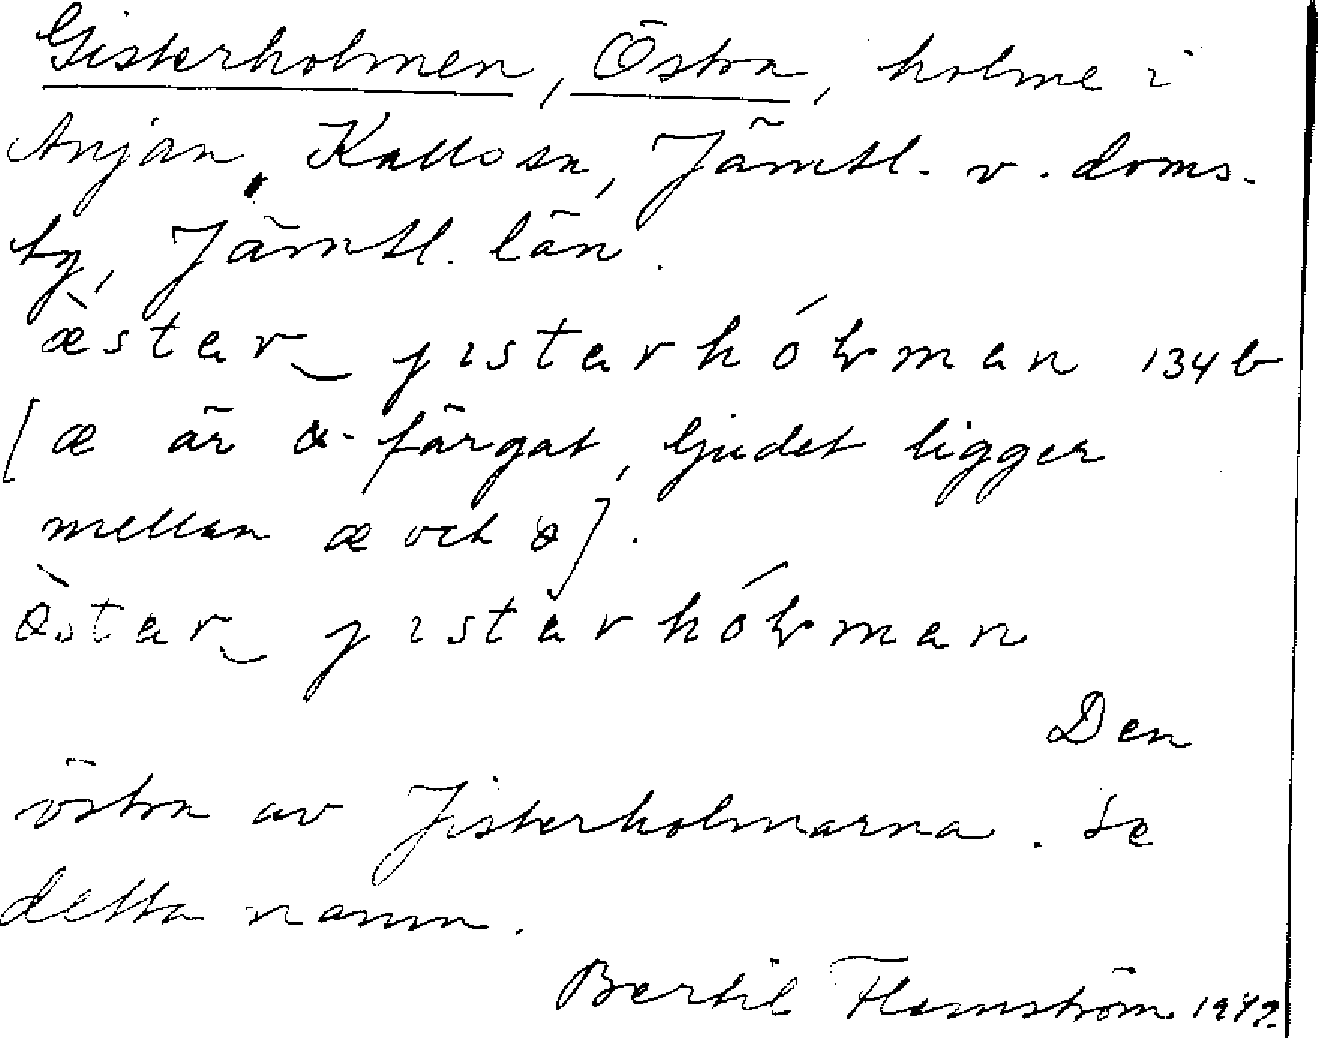 Gisterholmen, Östra, holme i
Anjan, Kall sn, Jämtl. v. doms-
ty, Jämtl. län.
æ̀star‿ jıstarhólʳman 134 b
[æ är ö-färgat, ljudet ligger
mellan æ och ö].
ö̀star‿ jıstarhólʳman
Den
östra av Jisterholmarna. Se
detta namn.
Bertil Flemström 1942.